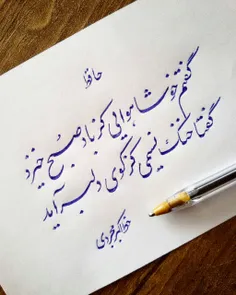 حافظ
گفتم خوشا هوایی کز باد صبح خیزد
گفتا خنک نسیمی کز کوی دلبر آید